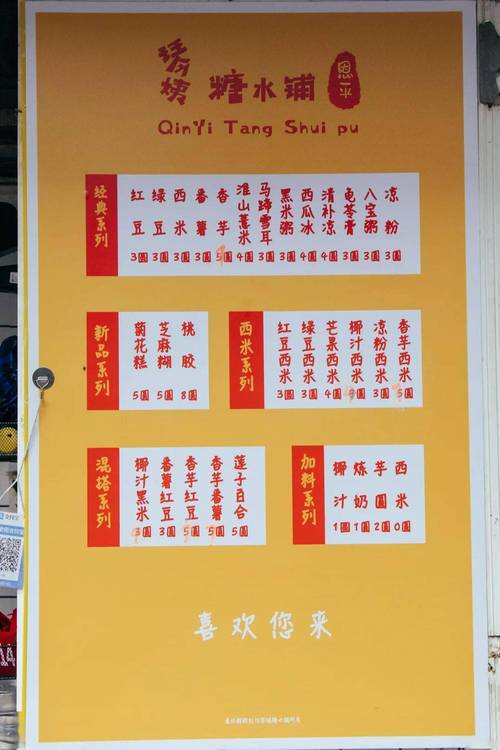 琴姨 糖水铺
QinYi Tang Shui pu
经典系列
红豆 3圓
绿豆 3圓
西米 3圓
番薯 3圓
香芋 5圓
淮山薏米 4圓
马蹄雪耳 3圓
黑米粥 3圓
西瓜冰 4圓
清补凉 4圓
龟苓膏 3圓
八宝粥 3圓
凉粉 3圓
新品系列
菊花糕 5圓
芝麻糊 5圓
桃胶 8圓
西米系列
红豆西米 3圓
绿豆西米 3圓
芒果西米 4圓
椰汁西米 4圓
凉粉西米 3圓
香芋西米 5圓
混搭系列
椰汁黑米 3圓
番薯红豆 3圓
香芋红豆 5圓
香芋番薯 5圓
莲子百合 5圓
加料系列
椰汁 1圓
炼奶 1圓
芋圆 2圓
西米 0圓
喜欢您来